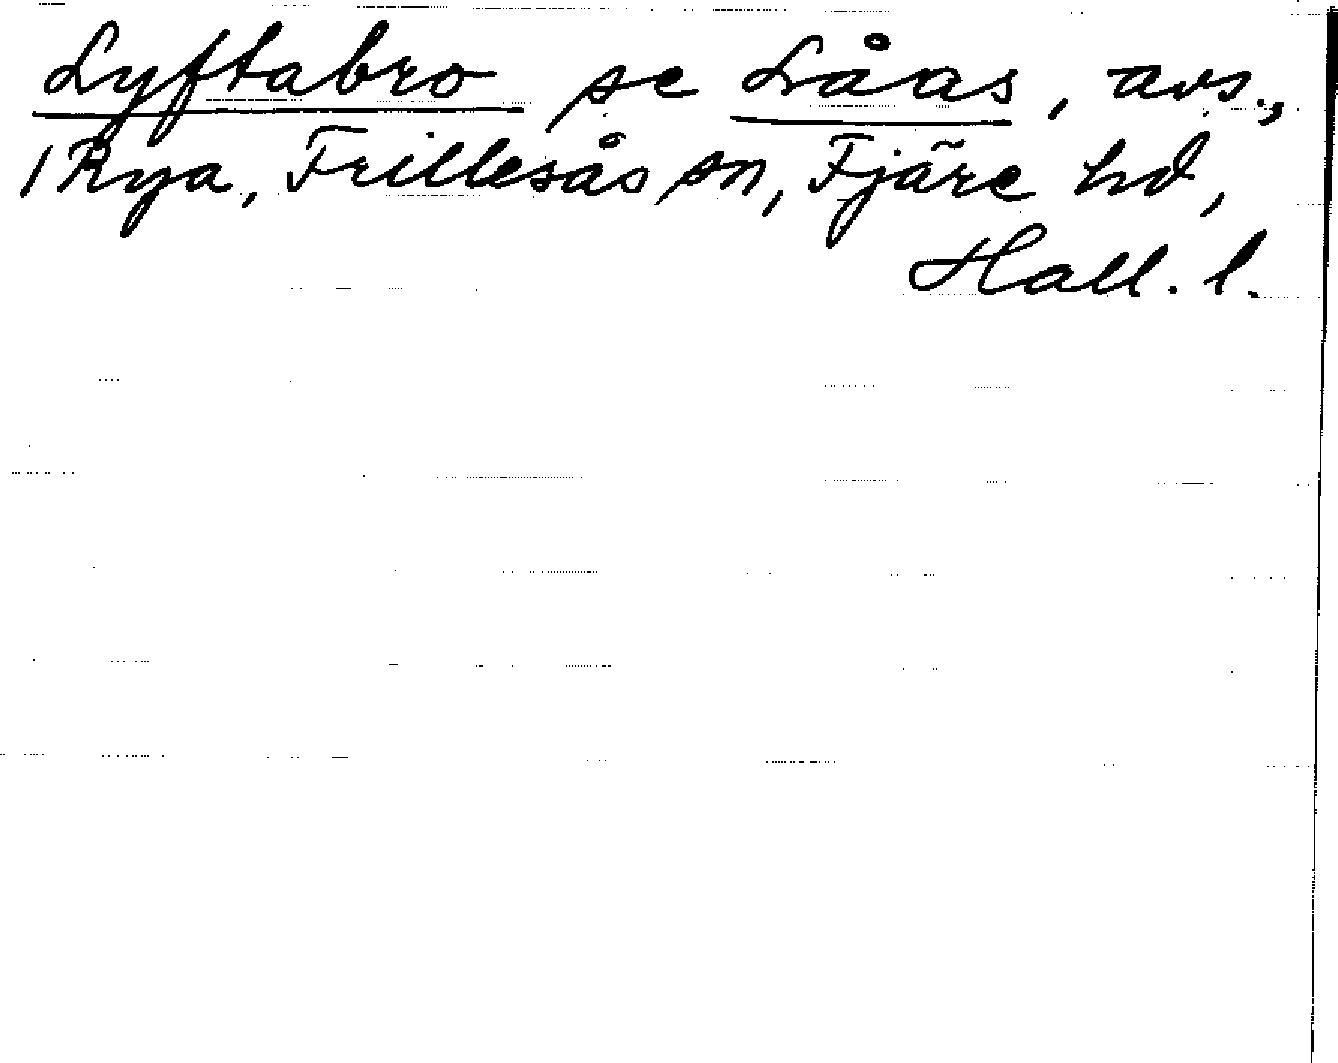 Lyftabro se Låas, avs.,
1 Rya, Frillesås sn, Fjäre hd,
Hall. l.